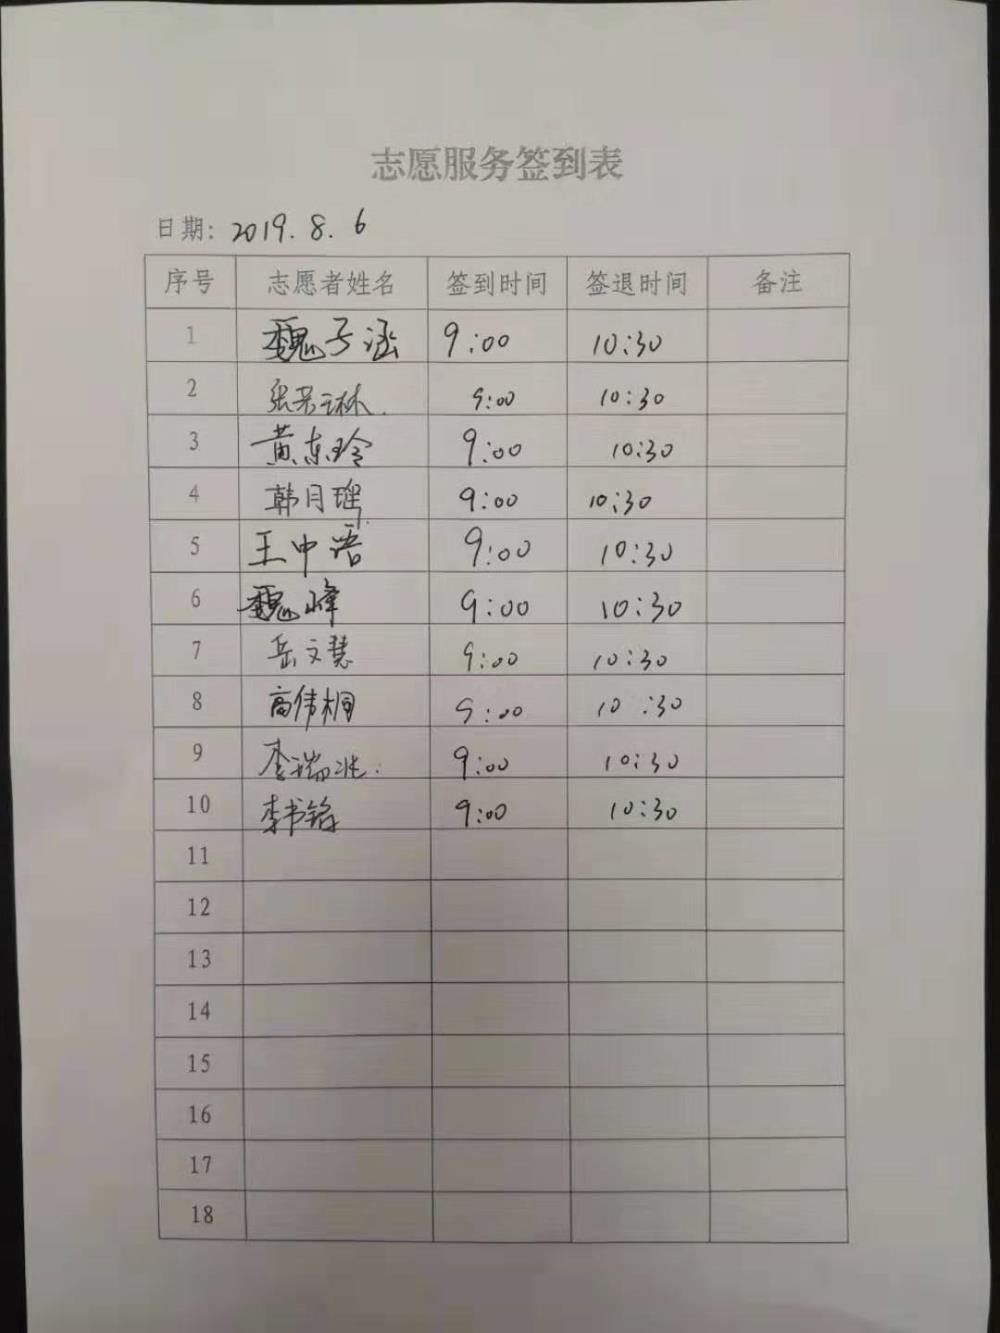 志愿服务签到表
日期: 2019.8.6
序号 志愿者姓名 签到时间 签退时间 备注
1 魏子涵 9:00 10:30
2 9:00 10:30
3 黄东玲 9:00 10:30
4 韩月瑶 9:00 10:30
5 王中语 9:00 10:30
6 魏峰 9:00 10:30
7 岳文慧 9:00 10:30
8 高伟桐 9:00 10:30
9 9:00 10:30
10 李书铭 9:00 10:30
11
12
13
14
15
16
17
18